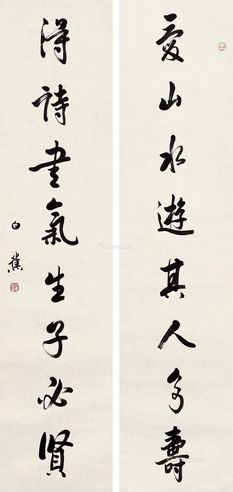 爱山水遊其人多壽
得詩書氣生子必賢
白蕉